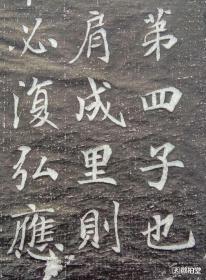 第四子也
肩成里則
必復弘應